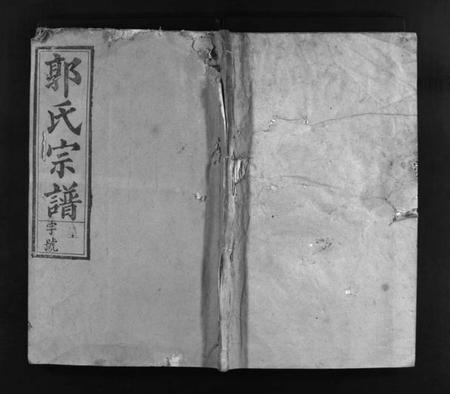 郭氏宗譜
字號